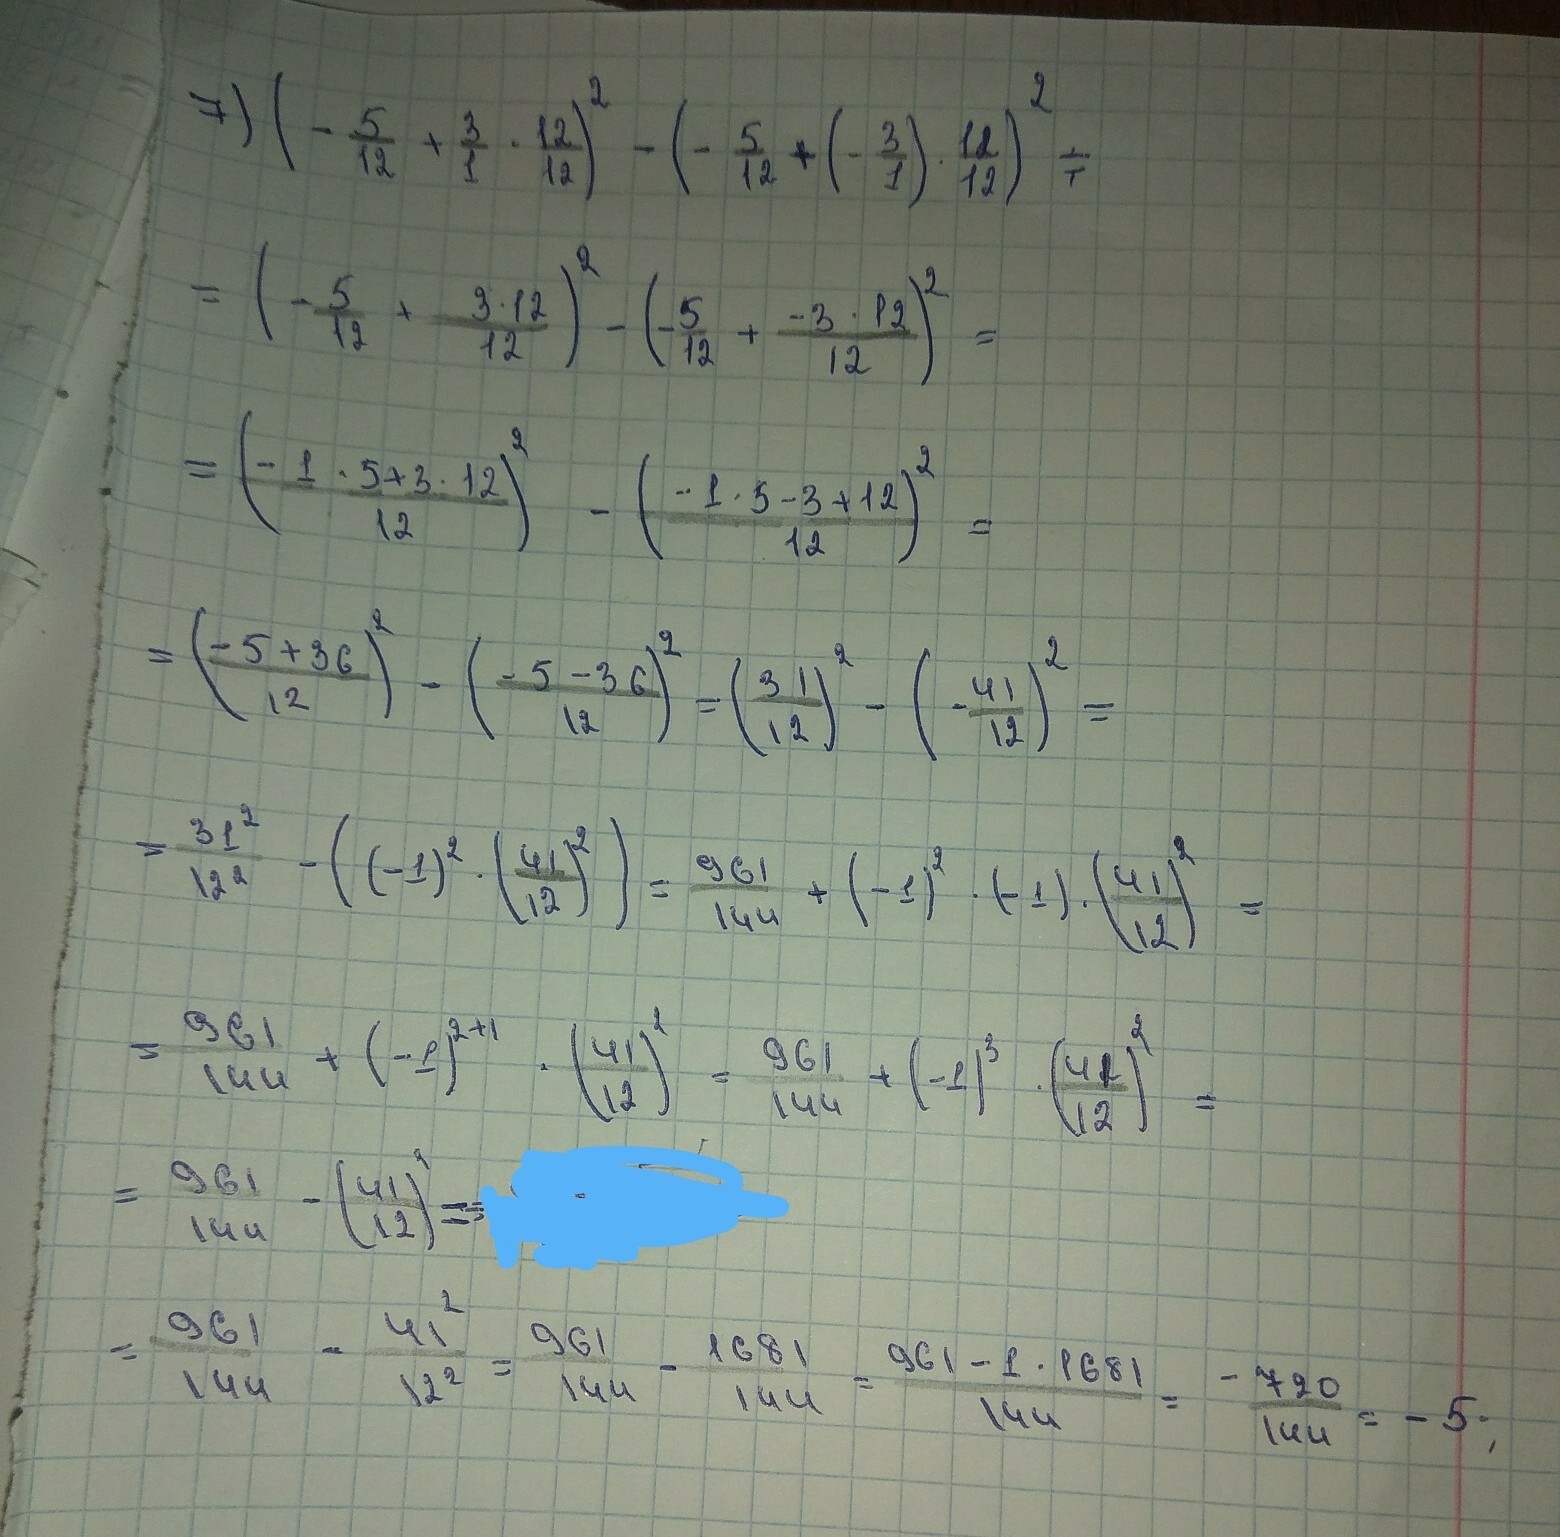 7) (- 5/12 + 3/1 · 12/12)² - (- 5/12 + (- 3/1) · 12/12)² =
= (- 5/12 + 3·12/12)² - (- 5/12 + -3 · 12/12)² =
= (- 1 · 5+3 · 12/12)² - (-1 · 5-3+12/12)² =
= (-5+36/12)² - (-5-36/12)² = (31/12)² - (- 41/12)² =
= 31²/12² - ((-1)² · (41/12)²) = 961/144 + (-1)² · (-1) · (41/12)² =
= 961/144 + (-1)²⁺¹ · (41/12)² = 961/144 + (-1)³ · (41/12)² =
= 961/144 - (41/12)² =
= 961/144 - 41²/12² = 961/144 - 1681/144 = 961-1·1681/144 = -720/144 = -5;